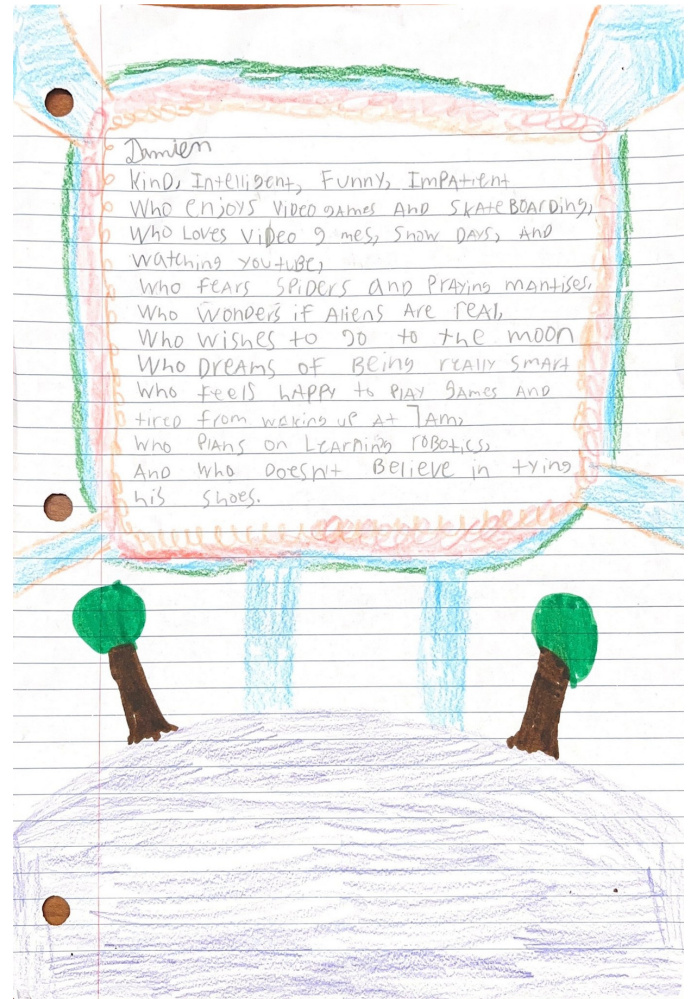 Damien
Kind, Intelligent, Funny, Impatient
Who enjoys video games And SkateBoarding,
Who Loves Video g mes, Snow Days, And
watching youtube,
Who fears Spiders and Praying mantises,
Who Wonders if Aliens Are real,
Who wishes to go to the moon
Who Dreams of Being really Smart
Who feels happy to play games and
tired from waking up At 7Am,
Who Plans on Learning robotics,
And who Doesn't Believe in tying
his shoes.